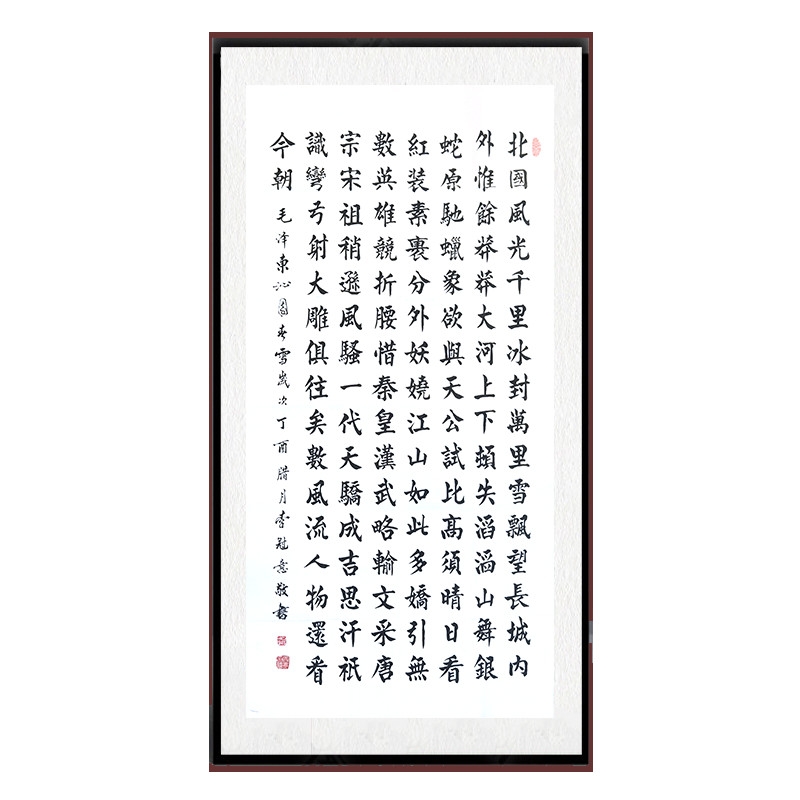 北國風光千里冰封萬里雪飄望長城内
外惟餘莽莽大河上下頓失滔滔山舞銀
蛇原馳蠟象欲與天公試比髙須晴日看
紅装素裹分外妖嬈江山如此多嬌引無
數英雄競折腰惜秦皇漢武略輸文采唐
宗宋祖稍遜風騷一代天驕成吉思汗祇
識彎弓射大雕俱往矣數風流人物還看
今朝 毛泽東沁園春雪歲次丁酉腊月李冠敬書